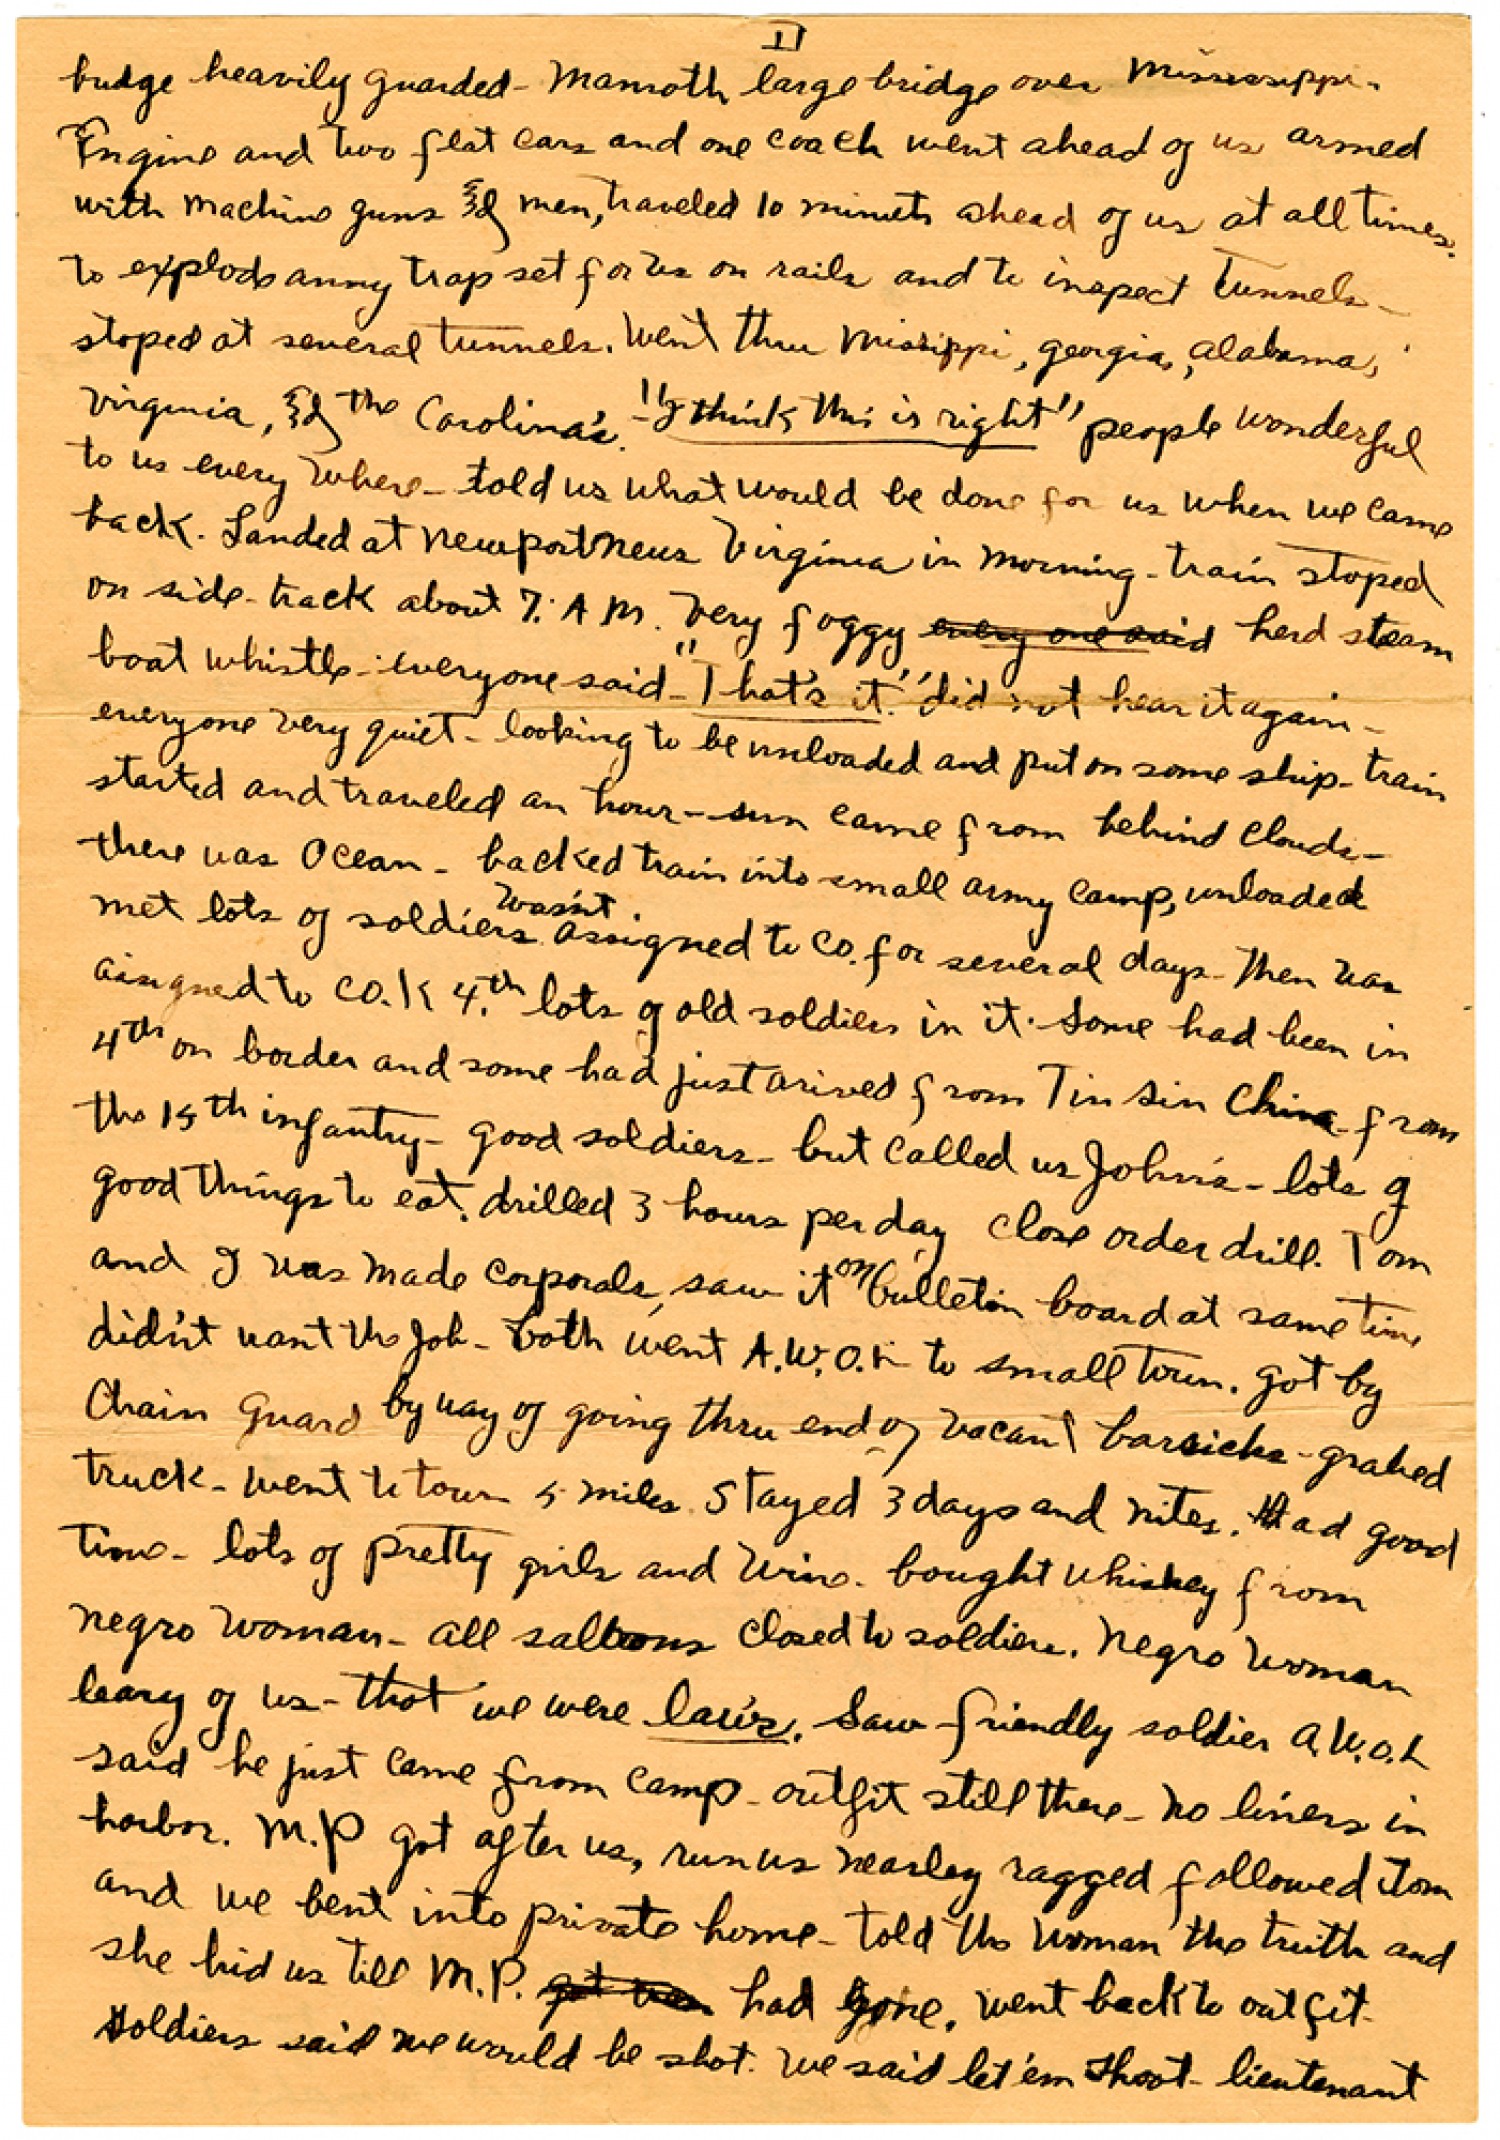 II
bridge heavily guarded - Mamoth large bridge over Mississippi -
Engine and two flat cars and one coach went ahead of us armed
with machine guns & men, traveled 10 minuets ahead of us at all times.
to explode anny trap set for us on rails and to inspect Tunnels -
stoped at several tunnels. Went thru Missippi, georgia, alabama,
Virginia, & the Carolina's. - "I think this is right" people wonderful
to us every where - told us what would be done for us when we came
back. Landed at newport news Virginia in morning - train stoped
on side-track about 7. A M. very foggy every one said herd steam
boat whistle - everyone said - "That's it." did not hear it again -
everyone very quiet - looking to be unloaded and put on some ship - train
started and traveled an hour - sun came from behind clouds -
there was Ocean - backed train into small army camp, unloaded
met lots of soldiers. wasn't assigned to Co. for several days - then was
assigned to CO. K 4.th lots of old soldiers in it. Some had been in
4th on border and some had just arived from Tin sin China from
the 15th infantry - good soldiers - but called us John's - lots of
good things to eat. drilled 3 hours per day close order drill. Tom
and I was made corporals, saw it on bulleton board at same time
didn't want the job - both went A.W.O.L to small town. got by
Chain Guard by way of going thru end of vacant barricks - grabed
truck - went to town 5 miles. Stayed 3 days and nites. Had good
time - lots of pretty girls and wine. bought whiskey from
negro woman - all saloons closed to soldiers. negro woman
leary of us - that we were law's. Saw friendly soldier A.W.O.L
said he just came from camp - outfit still there - no liners in
harbor. M.P got after us, run us nearley ragged followed Tom
and we bent into private home - told the woman the truth and
she hid us till M.P. had gone. went back to outfit -
soldiers said we would be shot. We said let 'em shoot - lieutenant